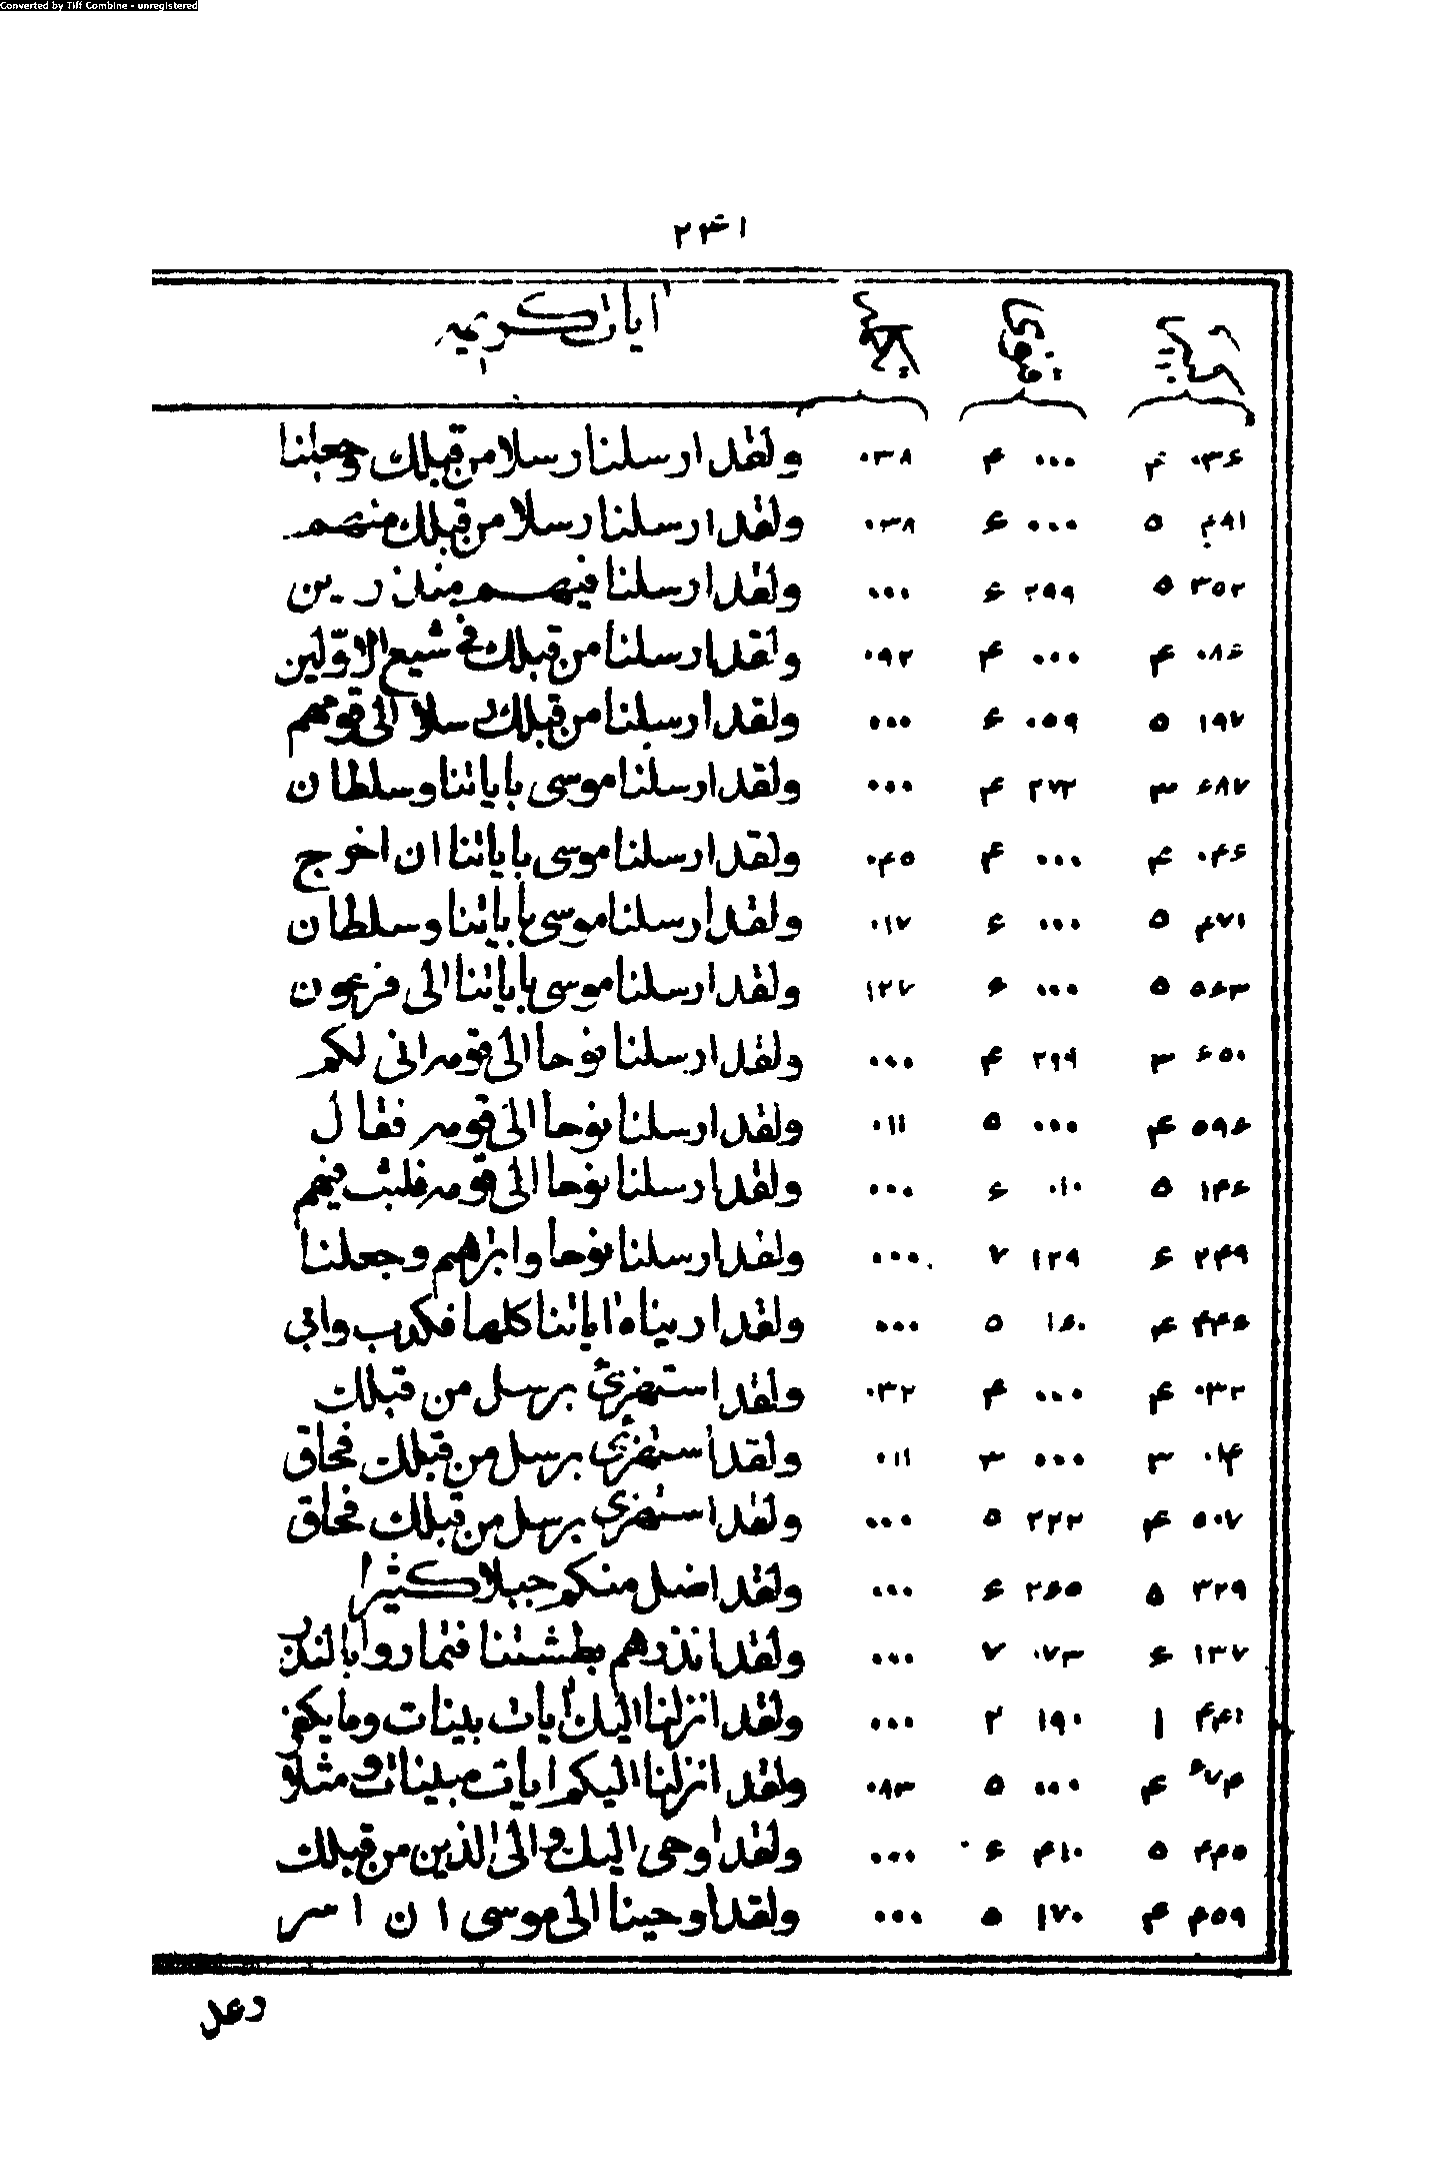 Converted by Tiff Combine - unregistered
٢٣١
آيات كريمه
٠٣۶ ۴ ٠٠٠ ۴ ٠٣٨ ولقد ارسلنا رسلا من قبلك وجعلنا
۴٨١ ۵ ٠٠٠ ۶ ٠٣٨ ولقد ارسلنا رسلا من قبلك منهم
٣۵٢ ۵ ٢٩٩ ۶ ٠٠٠ ولقد ارسلنا فيهم منذرين
٠٨۶ ۴ ٠٠٠ ۴ ٠٩٢ ولقد ارسلنا من قبلك في شيع الاوّلين
١٩٧ ۵ ٠۵٩ ۶ ٠٠٠ ولقد ارسلنا من قبلك رسلا الى قومهم
۶٨٧ ٣ ٢٧٢ ۴ ٠٠٠ ولقد ارسلنا موسى باياتنا وسلطان
٠۴۶ ۴ ٠٠٠ ۴ ٠۴۵ ولقد ارسلنا موسى باياتنا ان اخرج
۴٧١ ۵ ٠٠٠ ۶ ٠١٧ ولقد ارسلنا موسى باياتنا وسلطان
۵۶٣ ۵ ٠٠٠ ۶ ١٢٧ ولقد ارسلنا موسى باياتنا الى فرعون
۶۵٠ ٣ ٢٩٩ ۴ ٠٠٠ ولقد ارسلنا نوحا الى قومه انى لكم
۵٩۶ ۴ ٠٠٠ ۵ ٠١١ ولقد ارسلنا نوحا الى قومه فقال
١۴۶ ۵ ٠١٠ ۶ ٠٠٠ ولقد ارسلنا نوحا الى قومه فلبث فيهم
٢۴٩ ۶ ١٢٩ ٧ ٠٠٠ ولقد ارسلنا نوحا وابراهيم وجعلنا
۴۴۶ ۴ ١۶٠ ۵ ٠٠٠ ولقد اريناه اياتنا كلها فكذب وابى
٠٣٢ ۴ ٠٠٠ ۴ ٠٣٢ ولقد استهزئ برسل من قبلك
٠١۴ ٣ ٠٠٠ ٣ ٠١١ ولقد استهزئ برسل من قبلك فحاق
۵٠٧ ۴ ٢٢٢ ۵ ٠٠٠ ولقد استهزى برسل من قبلك فحاق
٣٢٩ ۵ ٢۶۵ ۶ ٠٠٠ ولقد اضل منكم جبلا كثيرا
١٣٧ ۶ ٠٧٣ ٧ ٠٠٠ ولقد انذرهم بطشتنا فتماروا بالنذر
۴۴١ ١ ١٩٠ ٢ ٠٠٠ ولقد انزلنا اليك ايات بينات وما يكفر
۶٧۴ ۴ ٠٠٠ ۵ ٠٨٣ ولقد انزلنا اليكم ايات مبينات و مثلا و
۴۴۵ ۵ ۴١٠ ۶ ٠٠٠ ولقد اوحى اليك والى الذين من قبلك
۴۵٩ ۴ ١٧٠ ۵ ٠٠٠ ولقد اوحينا الى موسى ان اسر